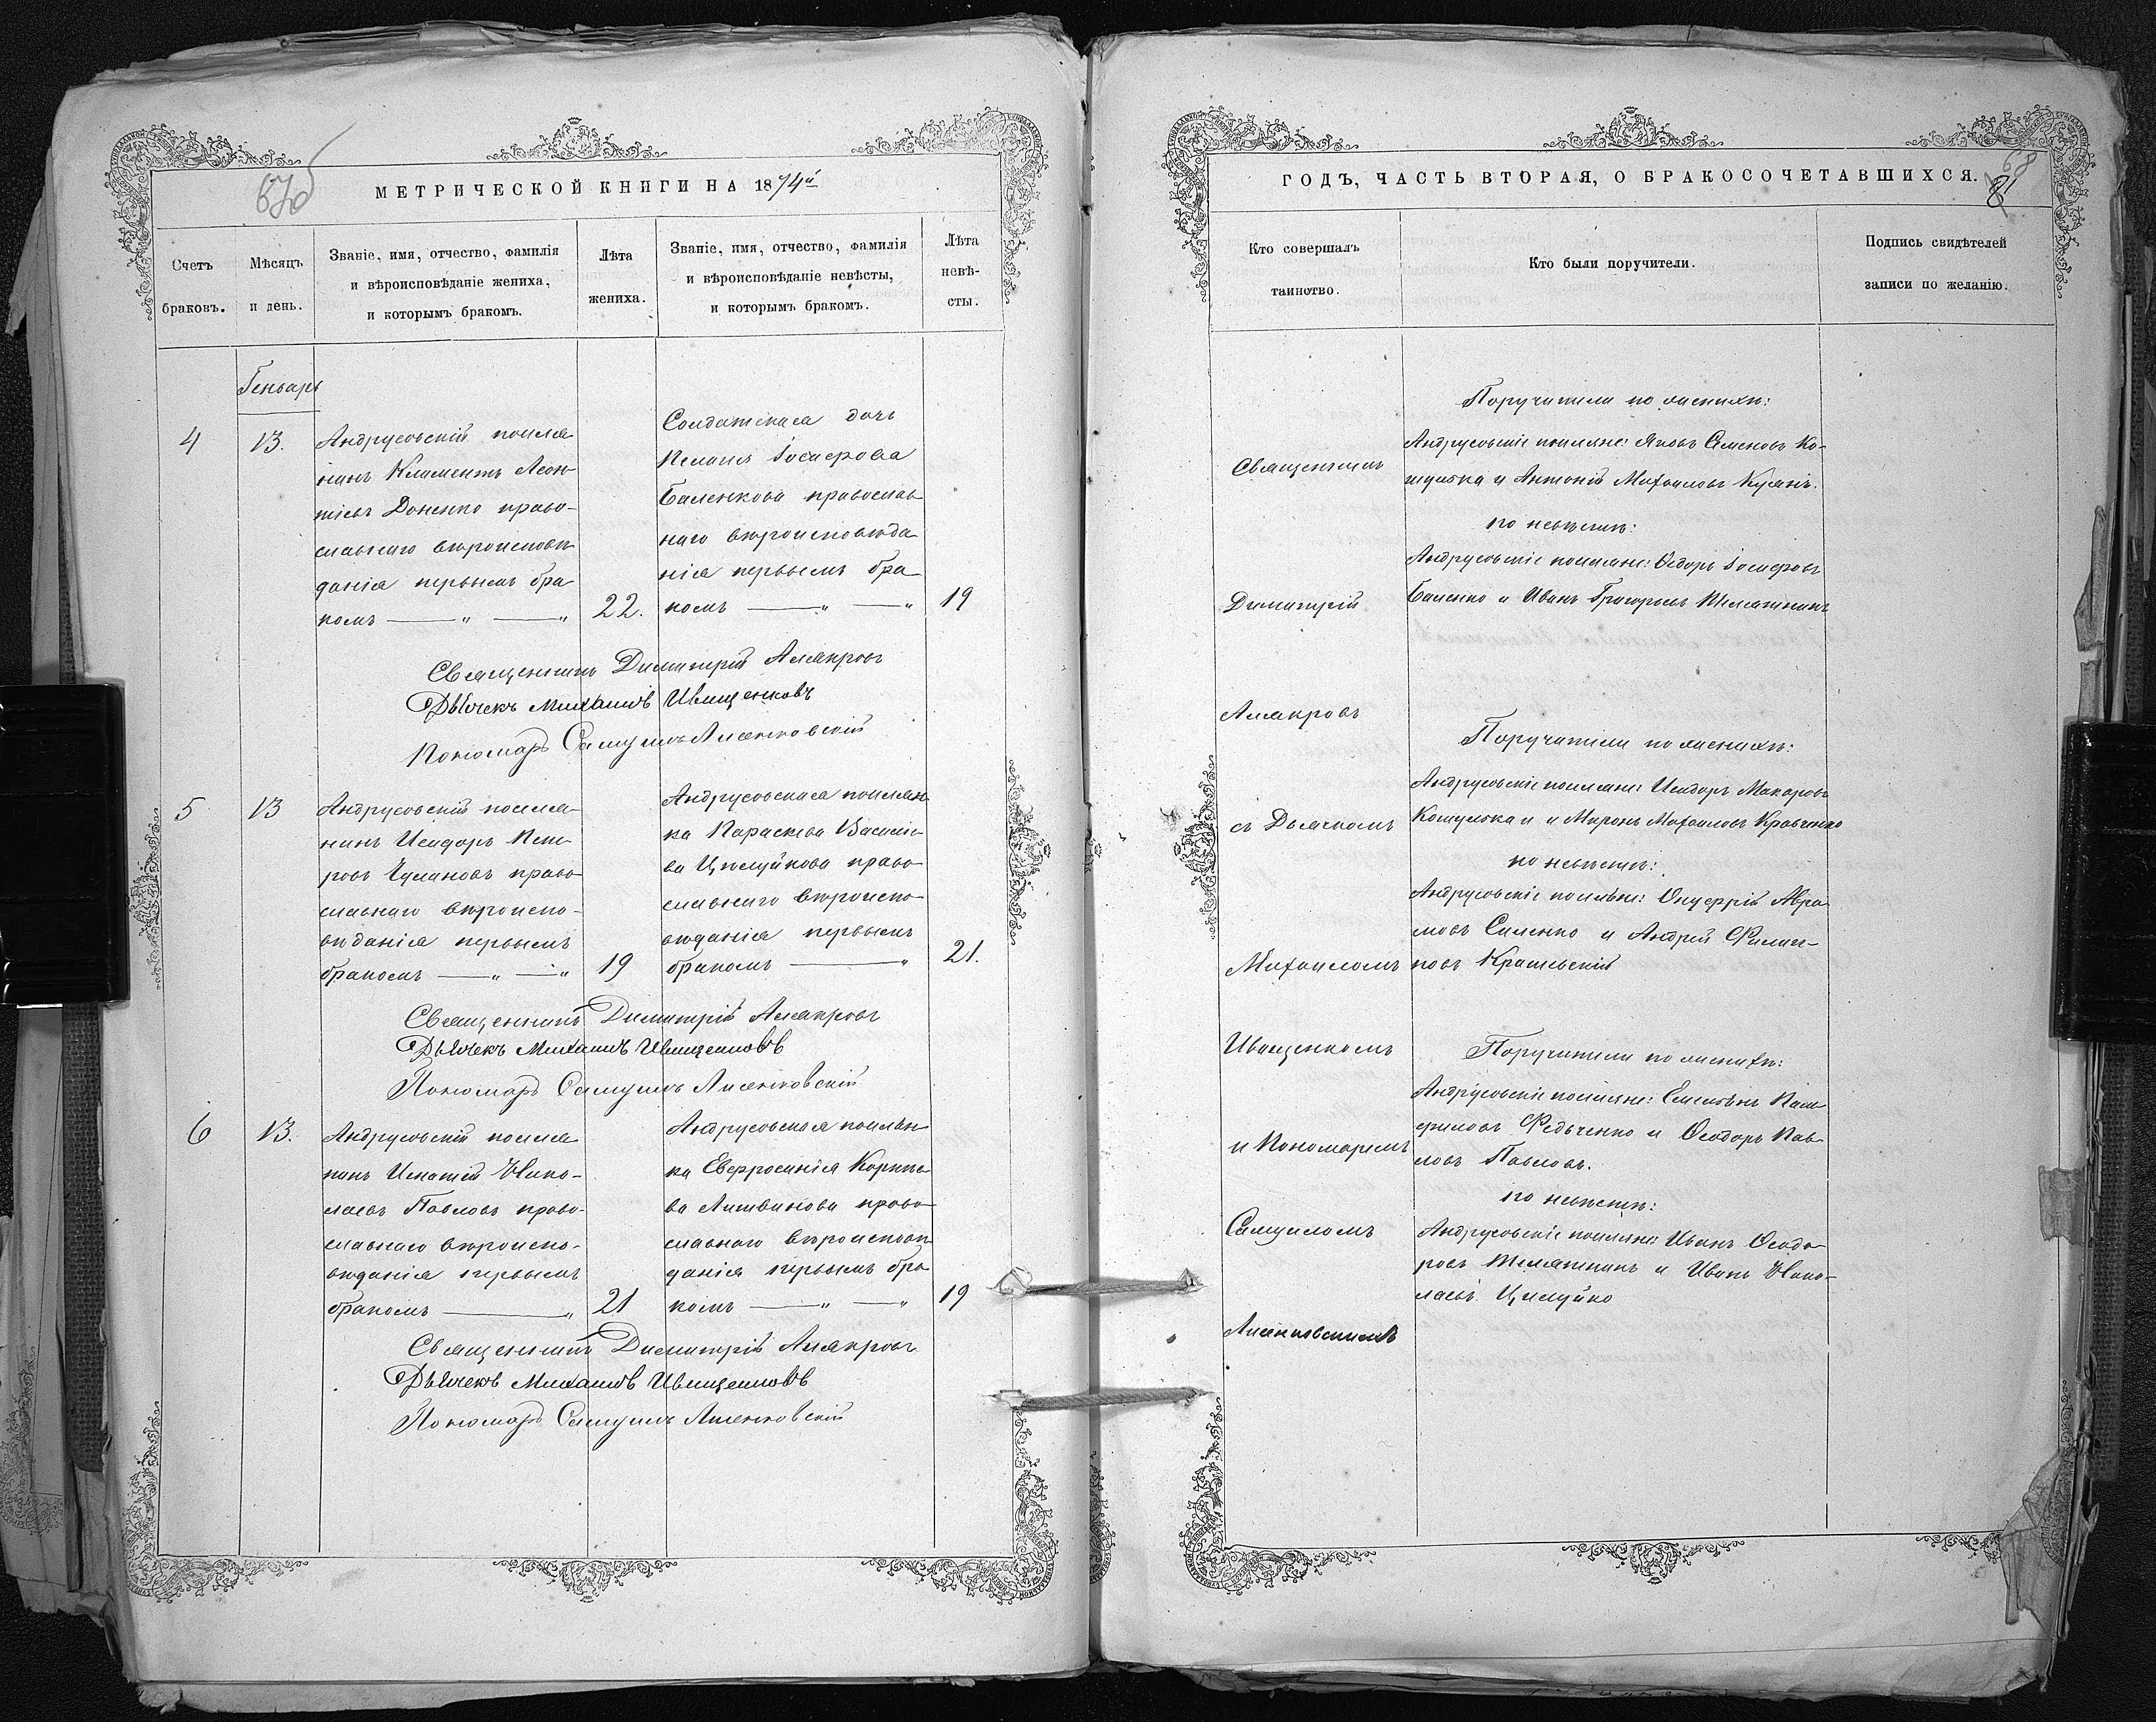 МЕТРИЧЕСКОЙ КНИГИ НА 1874й
Счетъ
браковъ.
Мѣсяцъ
и день.
Званіе, имя, отчество, фамилія
и вѣроисповѣданіе жениха,
и которымъ бракомъ.
Лѣта
жениха.
Званіе, имя, отчество, фамилія
и вѣроисповѣданіе невѣсты,
и которымъ бракомъ.
Лѣта
невѣ-
сты.
Геньварь
4
13.
Андрусовскій поселя
нинъ Климентъ Леон
тіевъ Доненко право-
славнаго вѣроисповѣ
данія первымъ бра
комъ — „ — „
22.
Солдатская дочь
Іосифова
Баленкова православ
наго вѣроисповѣда
нія первымъ бра
комъ — „ — „
19
Священникъ Димитрій
Дьячекъ Михаилъ Иващенковъ
Пономарь Самуилъ Лисенковскій
5
13
Андрусовскій поселя-
нинъ Исидоръ Пет-
ровъ право
славнаго вѣроиспо-
вѣданія первымъ
бракомъ — „ — „
19
Андрусовская поселян
ка Параскева Василіе
ва Цѣлуйкова право
славнаго вѣроиспо-
вѣданія первымъ
бракомъ — „
21.
Священникъ Димитрій
Дьячекъ Михаилъ Иващенковъ
Пономарь Самуилъ Лисенковскій
6
13.
Андрусовскій поселя
нинъ Игнатій Нико-
лаевъ Павловъ право-
славнаго вѣроиспо-
вѣданія первымъ
бракомъ — „
21
Андрусовская поселян
ка Евфросинія Корнѣе
ва Литвинова право
славнаго вѣроисповѣ
данія первымъ бра
комъ — „ — „
19
Священникъ Димитрій
Дьячекъ Михаилъ Иващенковъ
Пономарь Самуилъ Лисенковскій
ГОДЪ, ЧАСТЬ ВТОРАЯ, О БРАКОСОЧЕТАВШИХСЯ.
68
81
Кто совершалъ
таинство.
Кто были поручители.
Подпись свидѣтелей
записи по желанію.
Священникъ
Димитрій
съ Дьячкомъ
Михаиломъ
Иващенкомъ
и Пономаремъ
Самуиломъ
Лисенковскимъ
Поручители по женихѣ:
Андрусовскіе поселяне: Яковъ Семеновъ Ко-
и Антоній Михаиловъ
по невѣстѣ:
Андрусовскіе поселяне: Ѳедоръ Іосифовъ
Баленко и Иванъ Григорьевъ Телятникъ
Поручители по женихѣ:
Андрусовскіе поселяне: Исидоръ Макаровъ
и Миронъ Михаиловъ Кравченко
по невѣстѣ:
Андрусовскіе поселяне: Онуфрій Авра
мовъ Силенко и Андрей Филип-
повъ
Поручители по женихѣ:
Андрусовскіе поселяне: Емельянъ Пам
филовъ Федьченко и Ѳеодоръ Пав-
ловъ Павловъ.
по невѣстѣ:
Андрусовскіе поселяне: Иванъ Ѳеодо
ровъ Телятникъ и Иванъ Нико-
лаевъ Цилуйко